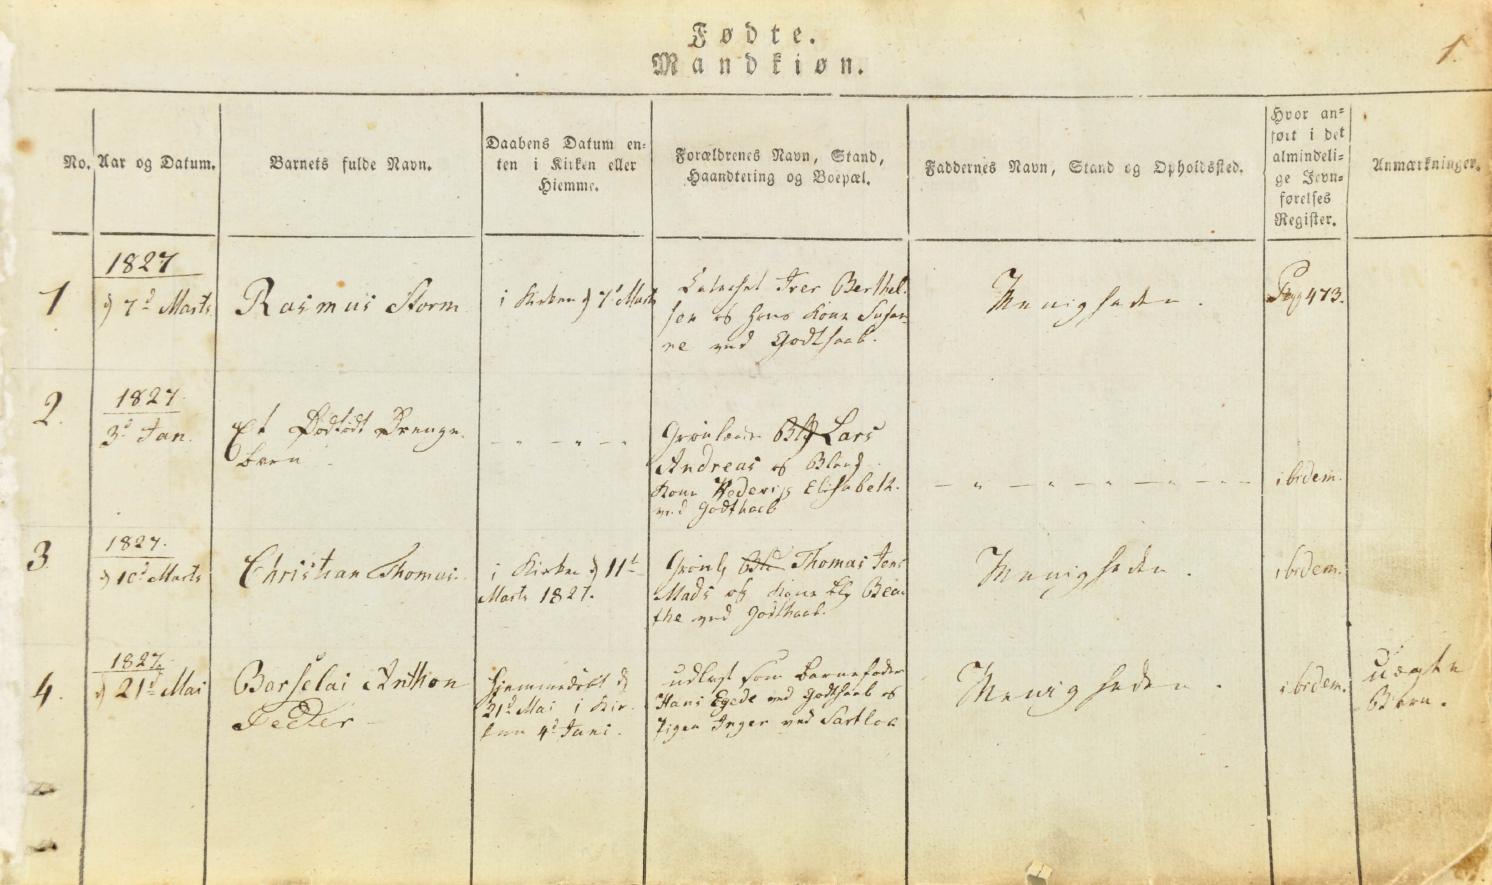 Fødte.
Mandkiøn.
1.
No.
Aar og Datum.
Barnets fulde Navn.
Daabens Datum en-
ten i Kirken eller
Hiemme.
Forældrenes Navn, Stand,
Haandtering og Boepæl.
Faddernes Navn, Stand og Opholdssted.
Hvor an-
ført i det
almindeli-
ge Jevn-
førelses
Register.
Anmærkninger.
1
1827
d 7d Marts
Rasmus Storm
i Kirken d 7d Marts
Catechet Iver Berthel-
sen og hans Kone Susan-
ne ved Godthaab.
Menigheden.
Pag 473.
2.
1827.
3d Jan.
Et Dødfødt Drenge-
barn
Grønlænder Lars
Andreas og Bland
Kone Hedevig Elisabeth.
ved Godthaab
ibidem.
3
1827.
d 10d Marts
Christian Thomas.
i Kirken d 11t
Marts 1827.
Grønl Thomas Jens
Mads og Kone Bea-
the ved Godthaab.
Menigheden.
ibidem.
4.
1827.
d 21d Mai
Barselai Anthon
Peder
Hjemmedøbt d
21d Mai i Kir-
ken 4d Juni.
udlagt som Barnefader
Hans Egede ved Godthaab og
Pigen Inger ved Sartlok
Menigheden.
ibidem.
Uægte
Barn.